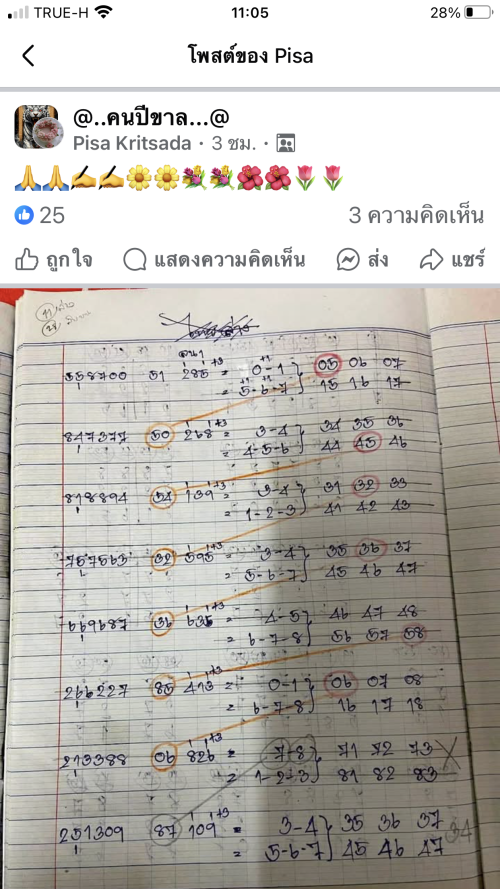 TRUE-H 11:05 28%
โพสต์ของ Pisa
@..คนปีขาล...@
Pisa Kritsada · 3 ชม. ·
🙏🙏✍️✍️🌼🌼💐💐🌺🌺🌷🌷
25 3 ความคิดเห็น
ถูกใจ แสดงความคิดเห็น ส่ง แชร์
+3
358700 51 285 = 0-1 } 05 06 07
= 5-6-7 } 15 16 17
847377 50 268 +3 = 3-4 } 34 35 36
= 4-5-6 } 44 45 46
818894 54 139 +3 = 3-4 } 31 32 33
= 1-2-3 } 41 42 43
757563 32 595 +3 = 3-4 } 35 36 37
= 5-6-7 } 45 46 47
669687 36 635 +3 = 4-5 } 46 47 48
= 6-7-8 } 56 57 58
266227 85 413 +3 = 0-1 } 06 07 08
= 6-7-8 } 16 17 18
213388 06 826 +3 = 7-8 } 71 72 73 X
= 1-2-3 } 81 82 83
251309 87 109 +3 = 3-4 } 35 36 37 34
= 5-6-7 } 45 46 47